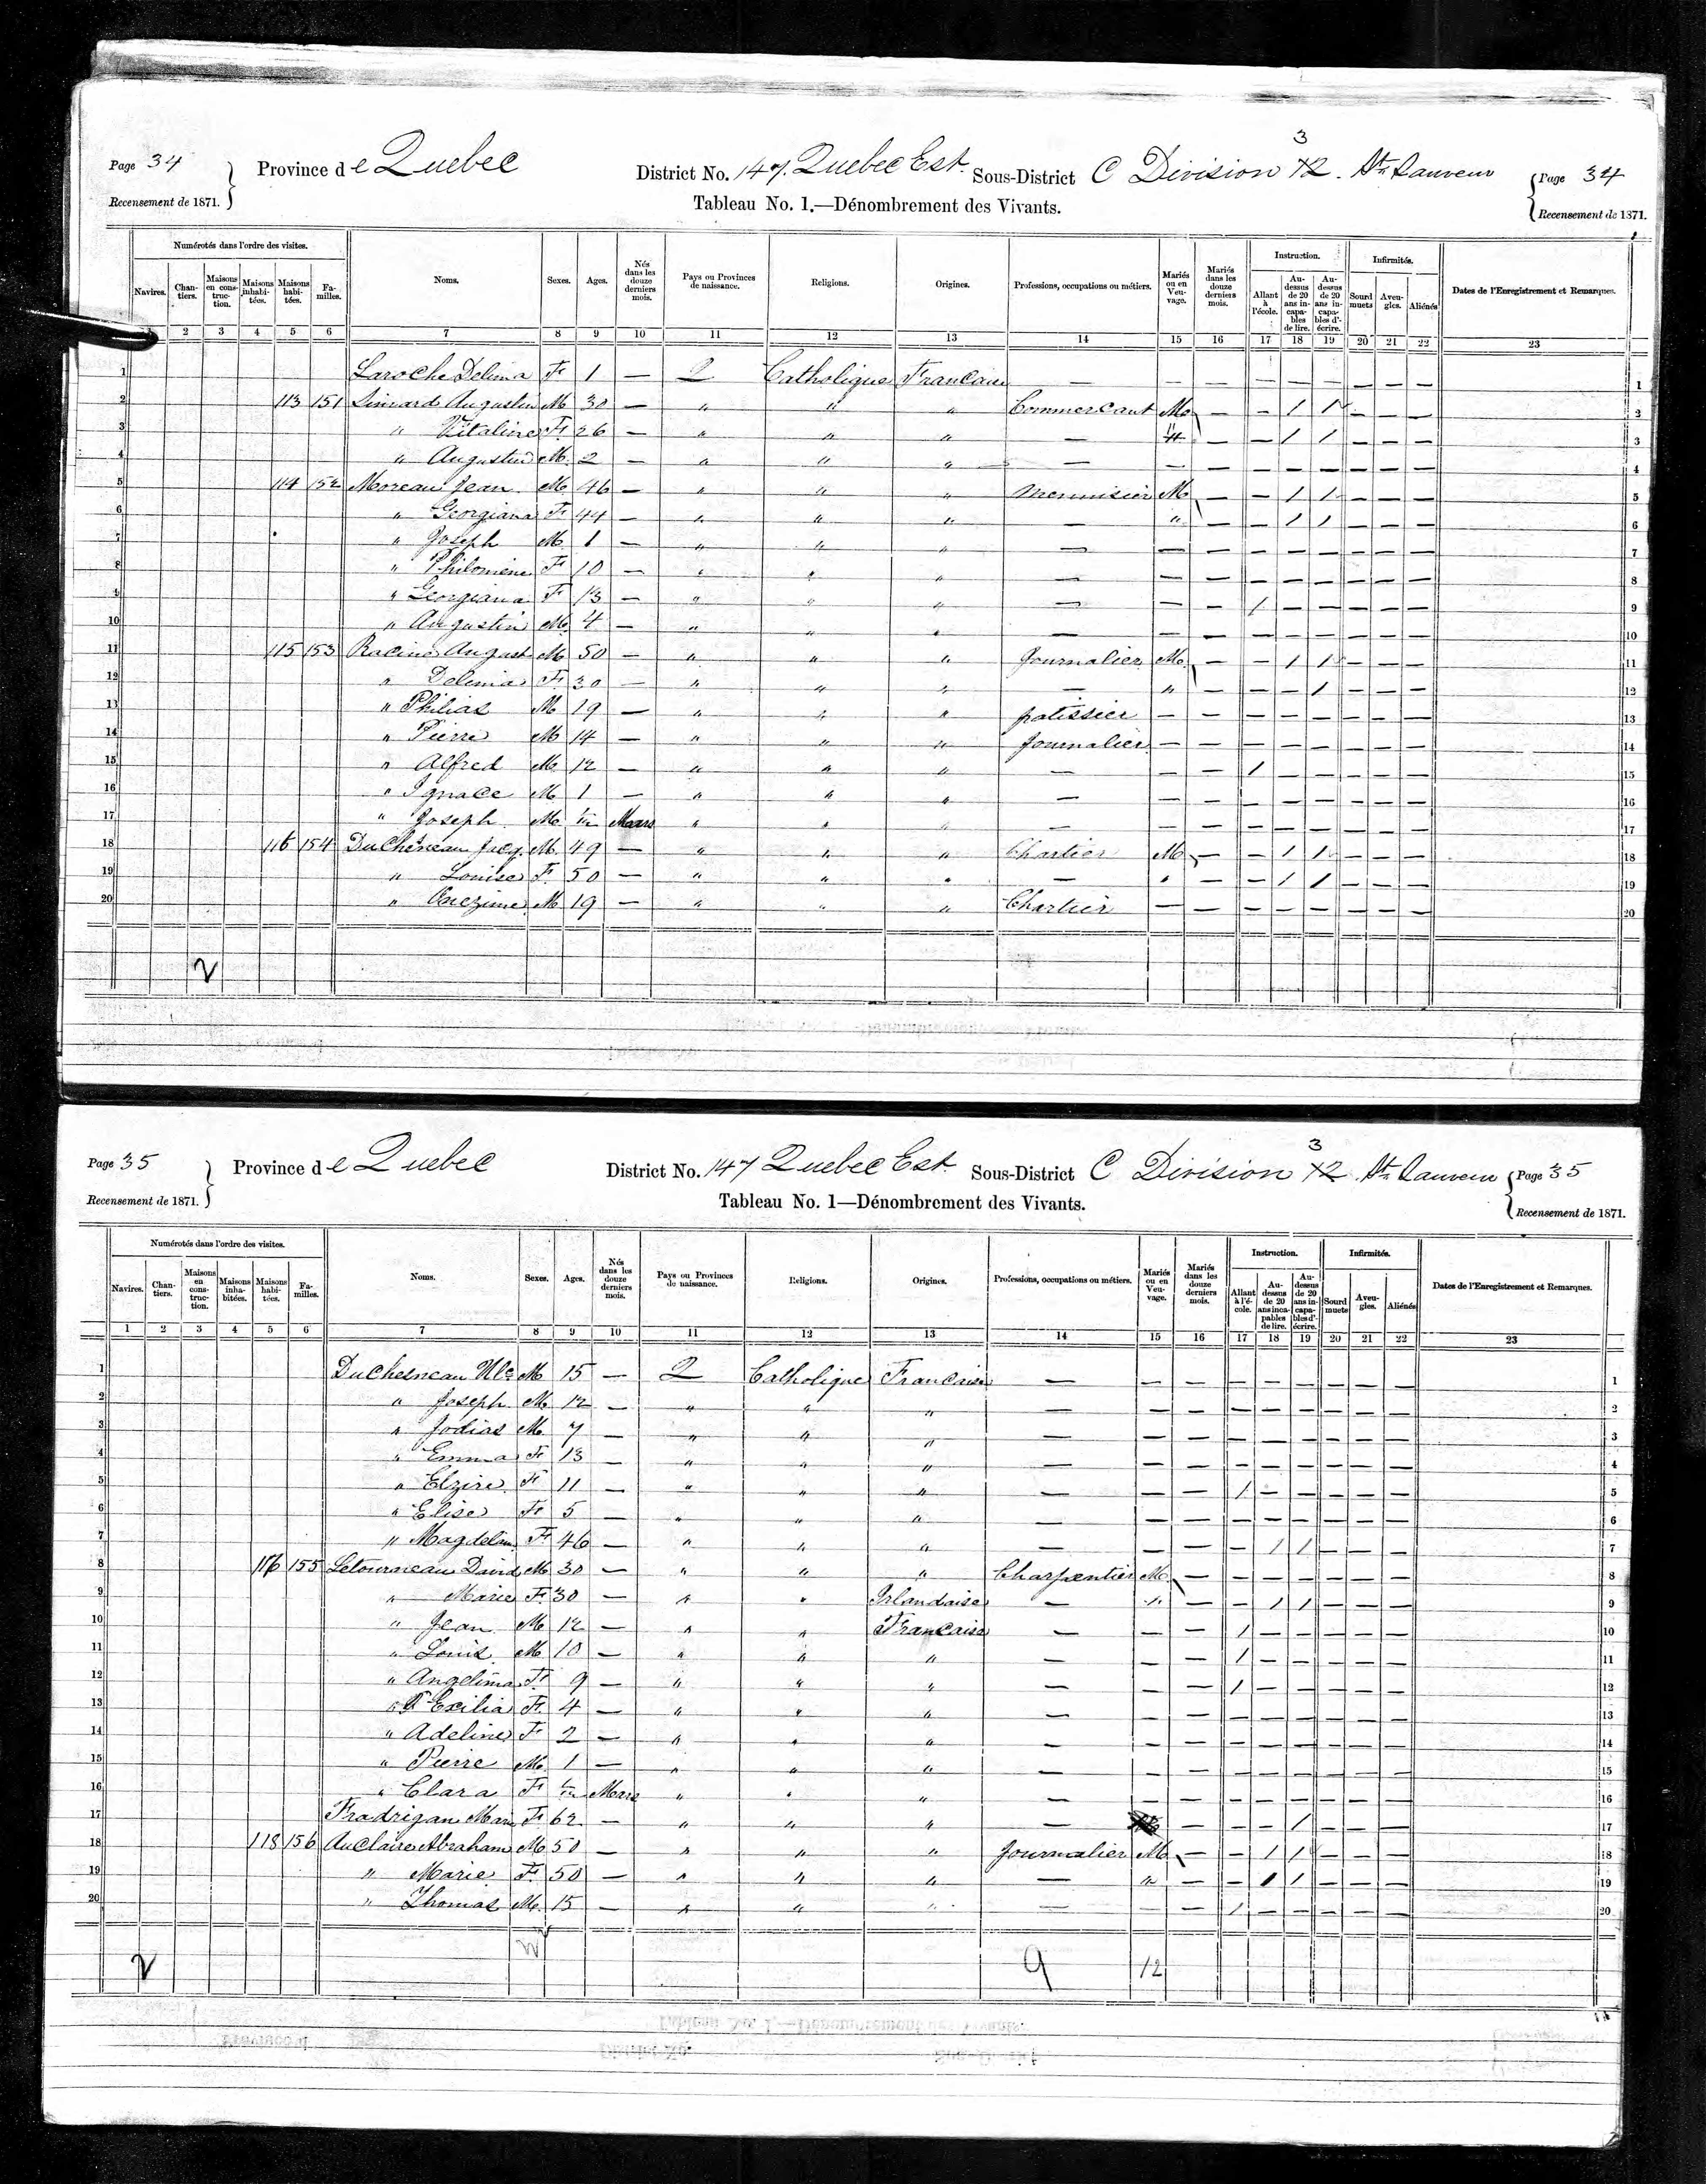 Page 34 Province de Quebec District No. 147. Quebec Est. Sous-District C Division 3 12. St. Sauveur Page 34
Recensement de 1871. Tableau No. 1.—Dénombrement des Vivants. Recensement de 1871.
Numérotés dans l'ordre des visites. Noms. Sexes. Ages. Nés dans les douze derniers mois. Pays ou Provinces de naissance. Religions. Origines. Professions, occupations ou métiers. Mariés ou en Veuvage. Mariés dans les douze derniers mois. Instruction. Infirmités. Dates de l'Enregistrement et Remarques.
Navires. Chantiers. Maisons en construction. Maisons inhabitées. Maisons habitées. Familles. Allant à l'école. Au-dessus de 20 ans incapables de lire. Au-dessus de 20 ans incapables d'écrire. Sourd muets Aveugles. Aliénés
2 3 4 5 6 7 8 9 10 11 12 13 14 15 16 17 18 19 20 21 22 23
1 Laroche Delima F 1 — Q Catholique Francaise — — — — — — — — — 1
2 113 151 Simard Augustin M 30 — " " " Commercant M — — 1 1 — — — 2
3 " Vitaline F 26 — " " " — " — — 1 1 — — — 3
4 " Augustin M 2 — " " " — — — — — — — — — 4
5 114 152 Moreau Jean M 46 — " " " Menuisier M — — 1 1 — — — 5
6 " Georgiana F 44 — " " " — " — — 1 1 — — — 6
7 " Joseph M 1 — " " " — — — — — — — — — 7
8 " Philomene F 10 — " " " — — — — — — — — — 8
9 " Georgiana F 13 — " " " — — — 1 — — — — — 9
10 " Augustin M 4 — " " " — — — — — — — — — 10
11 115 153 Racine August M 50 — " " " Journalier M — — 1 1 — — — 11
12 " Delima F 30 — " " " — " — — — 1 — — — 12
13 " Philias M 19 — " " " patissier — — — — — — — — 13
14 " Pierre M 14 — " " " Journalier — — — — — — — — 14
15 " Alfred M 12 — " " " — — — 1 — — — — — 15
16 " Ignace M 1 — " " " — — — — — — — — — 16
17 " Joseph M 1/12 Mars " " " — — — — — — — — — 17
18 116 154 DuChesneau Jacq. M 49 — " " " Chartier M — — 1 1 — — — 18
19 " Louise F 50 — " " " — " — — 1 1 — — — 19
20 " Onezime M 19 — " " " Chartier — — — — — — — — 20
Page 35 Province de Quebec District No. 147 Quebec Est. Sous-District C Division 3 12. St. Sauveur Page 35
Recensement de 1871. Tableau No. 1—Dénombrement des Vivants. Recensement de 1871.
Numérotés dans l'ordre des visites. Noms. Sexes. Ages. Nés dans les douze derniers mois. Pays ou Provinces de naissance. Religions. Origines. Professions, occupations ou métiers. Mariés ou en Veuvage. Mariés dans les douze derniers mois. Instruction. Infirmités. Dates de l'Enregistrement et Remarques.
Navires. Chantiers. Maisons en construction. Maisons inhabitées. Maisons habitées. Familles. Allant à l'école. Au-dessus de 20 ans incapables de lire. Au-dessus de 20 ans incapables d'écrire. Sourd muets Aveugles. Aliénés
1 2 3 4 5 6 7 8 9 10 11 12 13 14 15 16 17 18 19 20 21 22 23
1 DuChesneau M 15 — Q Catholique Francaise — — — — — — — — — 1
2 " Joseph M 12 — " " " — — — — — — — — — 2
3 " Jodias M 7 — " " " — — — — — — — — — 3
4 " Emma F 13 — " " " — — — — — — — — — 4
5 " Elzire F 11 — " " " — — — 1 — — — — — 5
6 " Elise F 5 — " " " — — — — — — — — — 6
7 " Magdelain F 46 — " " " — — — — 1 1 — — — 7
8 116 155 Letourneau David M 30 — " " " Charpentier M — — — — — — — 8
9 " Marie F 30 — " " Irlandaise — " — — 1 1 — — — 9
10 " Jean M 12 — " " Francaise — — — 1 — — — — — 10
11 " Louis M 10 — " " " — — — 1 — — — — — 11
12 " Angelima F 9 — " " " — — — 1 — — — — — 12
13 " Exilia F 4 — " " " — — — — — — — — — 13
14 " Adeline F 2 — " " " — — — — — — — — — 14
15 " Pierre M 1 — " " " — — — — — — — — — 15
16 " Clara F 1/12 Mars " " " — — — — — — — — — 16
17 Fradrigan Marie F 62 — " " " — — — — 1 — — — 17
18 118 156 AuClaire Abraham M 50 — " " " Journalier M — — 1 1 — — — 18
19 " Marie F 50 — " " " — " — — 1 1 — — — 19
20 " Thomas M 15 — " " " — — — 1 — — — — — 20
9 12